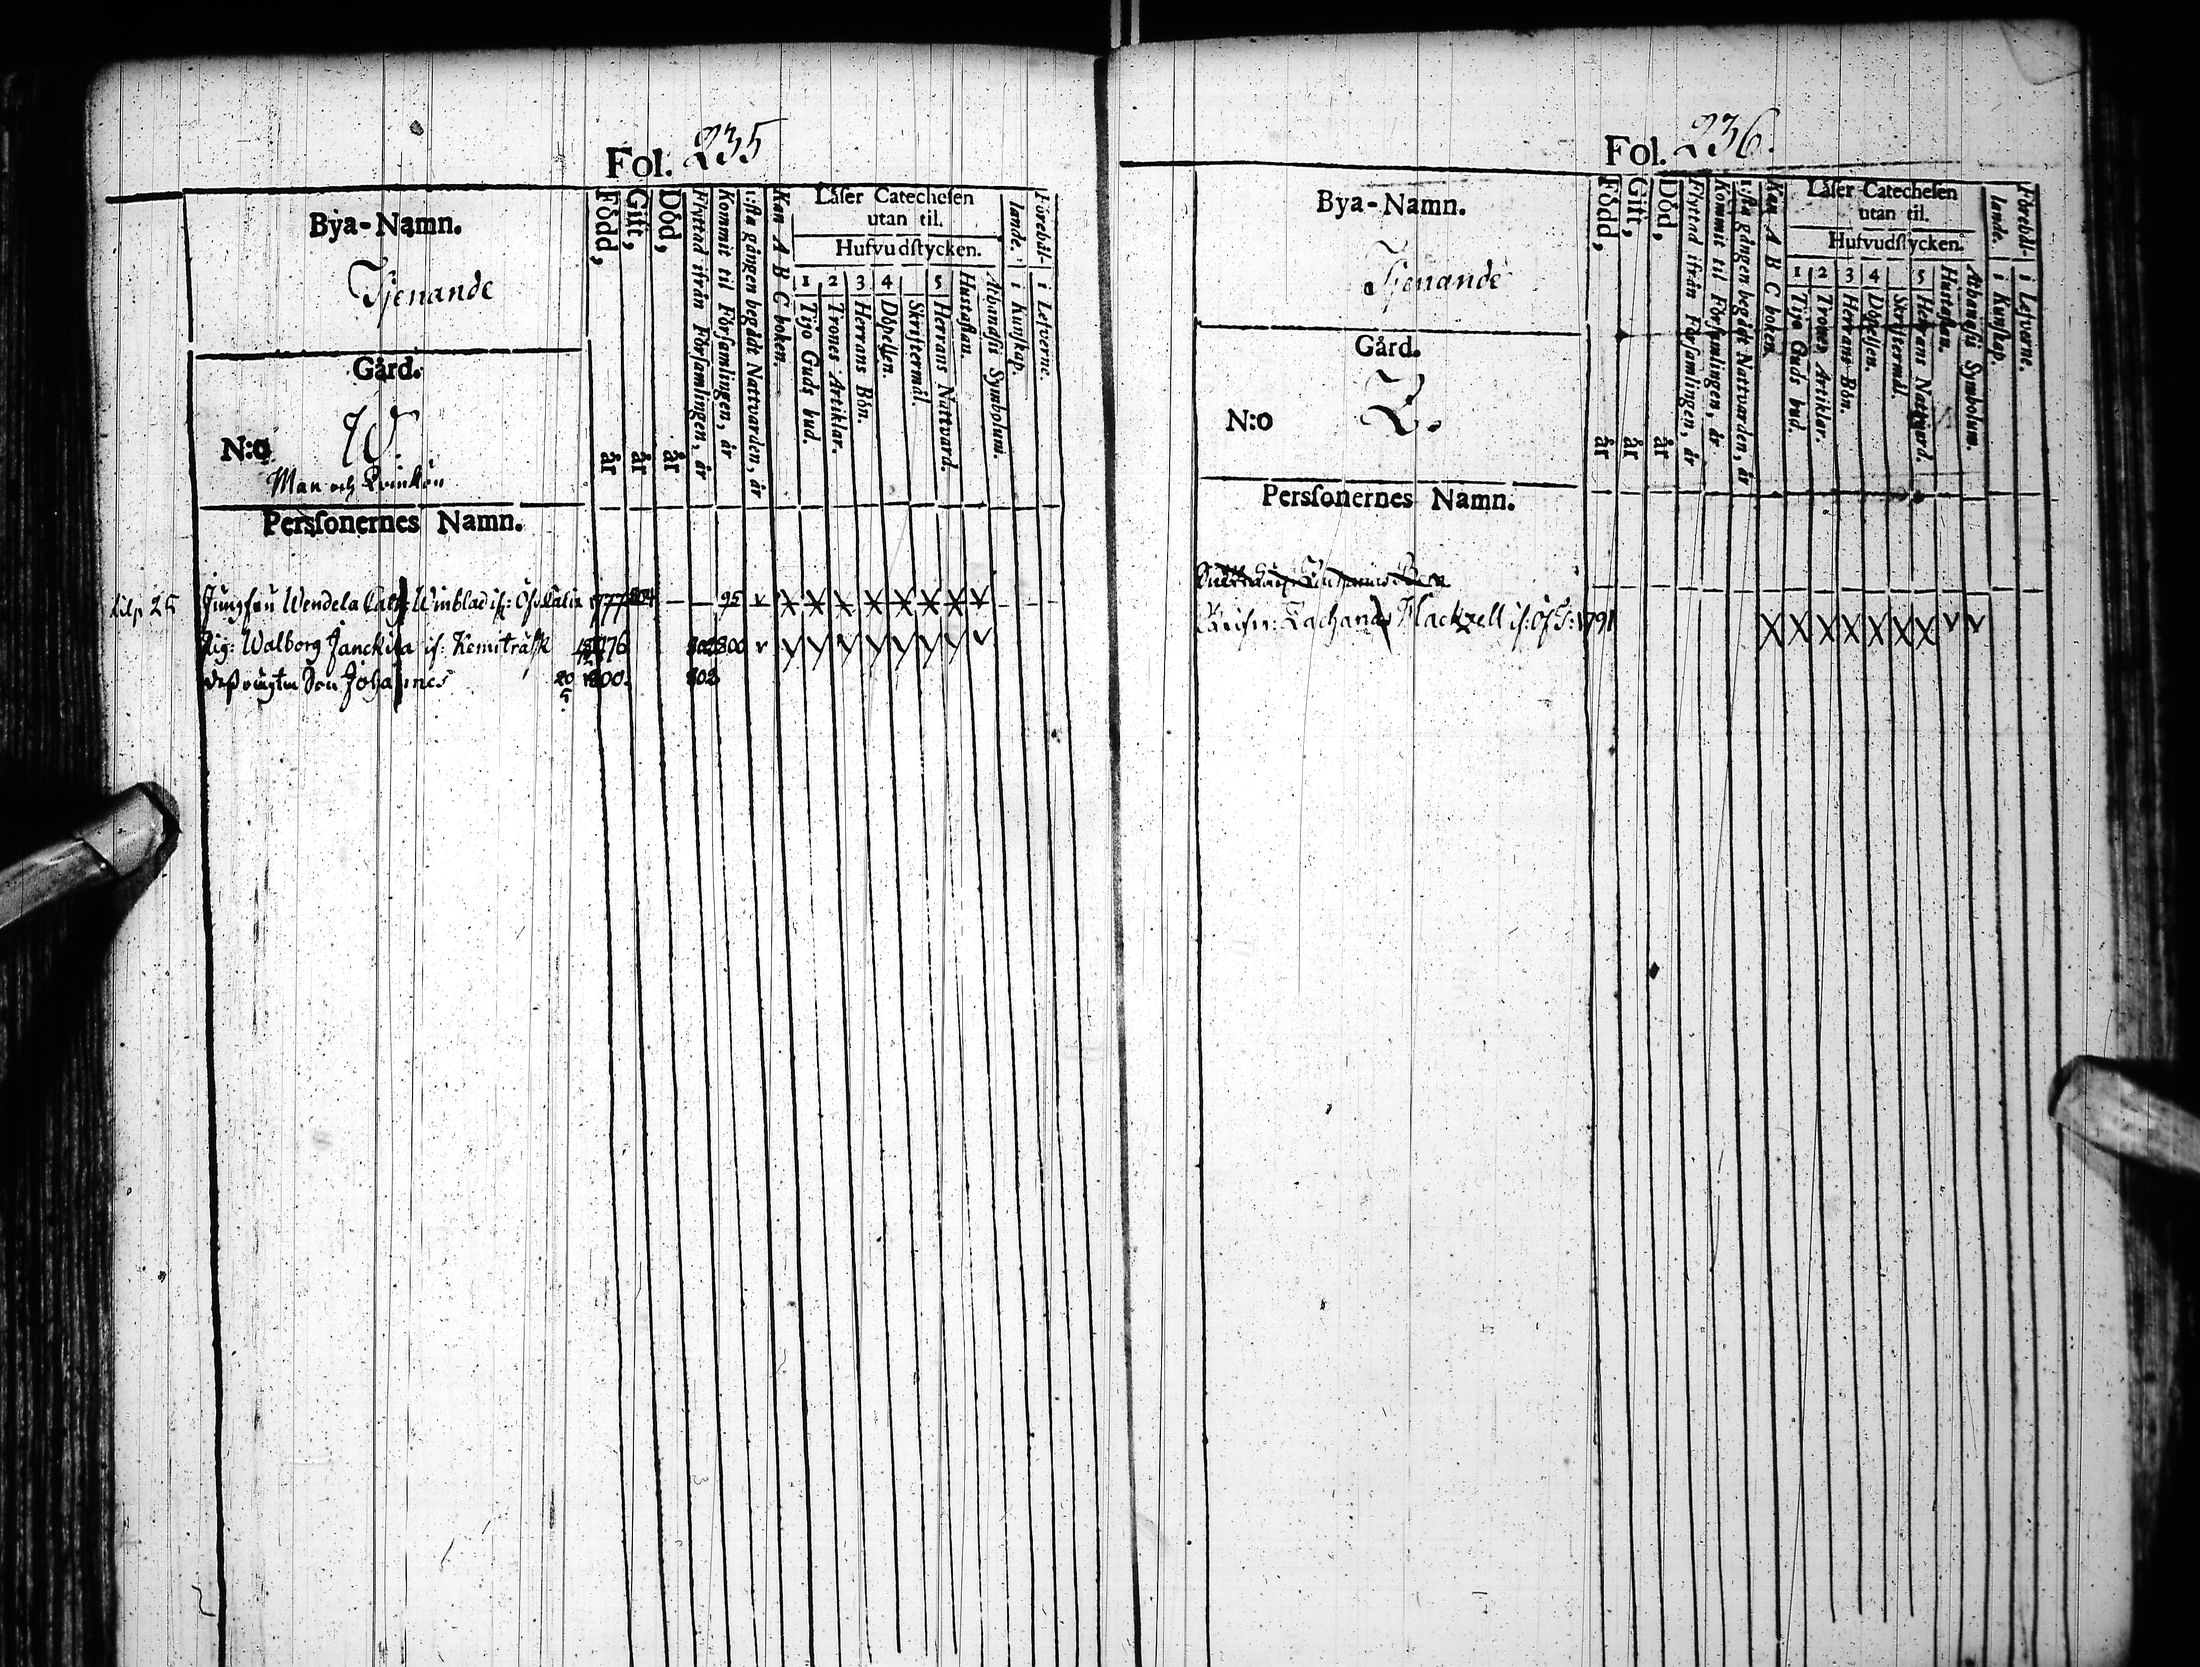 Fol. 235
Bya-Namn.
Tjenande
Gård.
N:o W.
Man och Qvinkön
Persſonernes Namn.
Född, år
Gift, år
Död, år
Flyttad ifrån Förſamlingen, år
Kommit til Förſamlingen, år
1:ſta gången begådt Nattvarden, år
Kan A B C boken.
Läſer Catecheſen
utan til.
Hufvudſtycken.
1 Tijo Guds bud.
2 Trones Artiklar.
3 Herrans Bön.
4 Döpelſen.
Skriftermål.
5 Herrans Nattvard.
Huſtaflan.
Athanaſii Symbolum.
Förehållande.
i Kunſkap.
i Lefverne.
25 Jungfru Wendela Cath Winblad if: Öf. Calix 1777 804 — — 95 v X X X X X X X X
Pig: Walborg Janckila if: Kemiträſk 1776 802 800 v
Son Johannes 20/5 1800. 802
Fol. 236.
Bya-Namn.
Tjenande
Gård.
N:o Z.
Persſonernes Namn.
Född, år
Gift, år
Död, år
Flyttad ifrån Förſamlingen, år
Kommit til Förſamlingen, år
1:ſta gången begådt Nattvarden, år
Kan A B C boken.
Läſer Catecheſen
utan til.
Hufvudſtycken.
1 Tijo Guds bud.
2 Trones Artiklar.
3 Herrans Bön.
4 Döpelſen.
Skriftermål.
5 Herrans Nattvard.
Huſtaflan.
Athanaſii Symbolum.
Förehållande.
i Kunſkap.
i Lefverne.
Zachand Flackzell if: Öf T: 1791 X X X X X X X v v